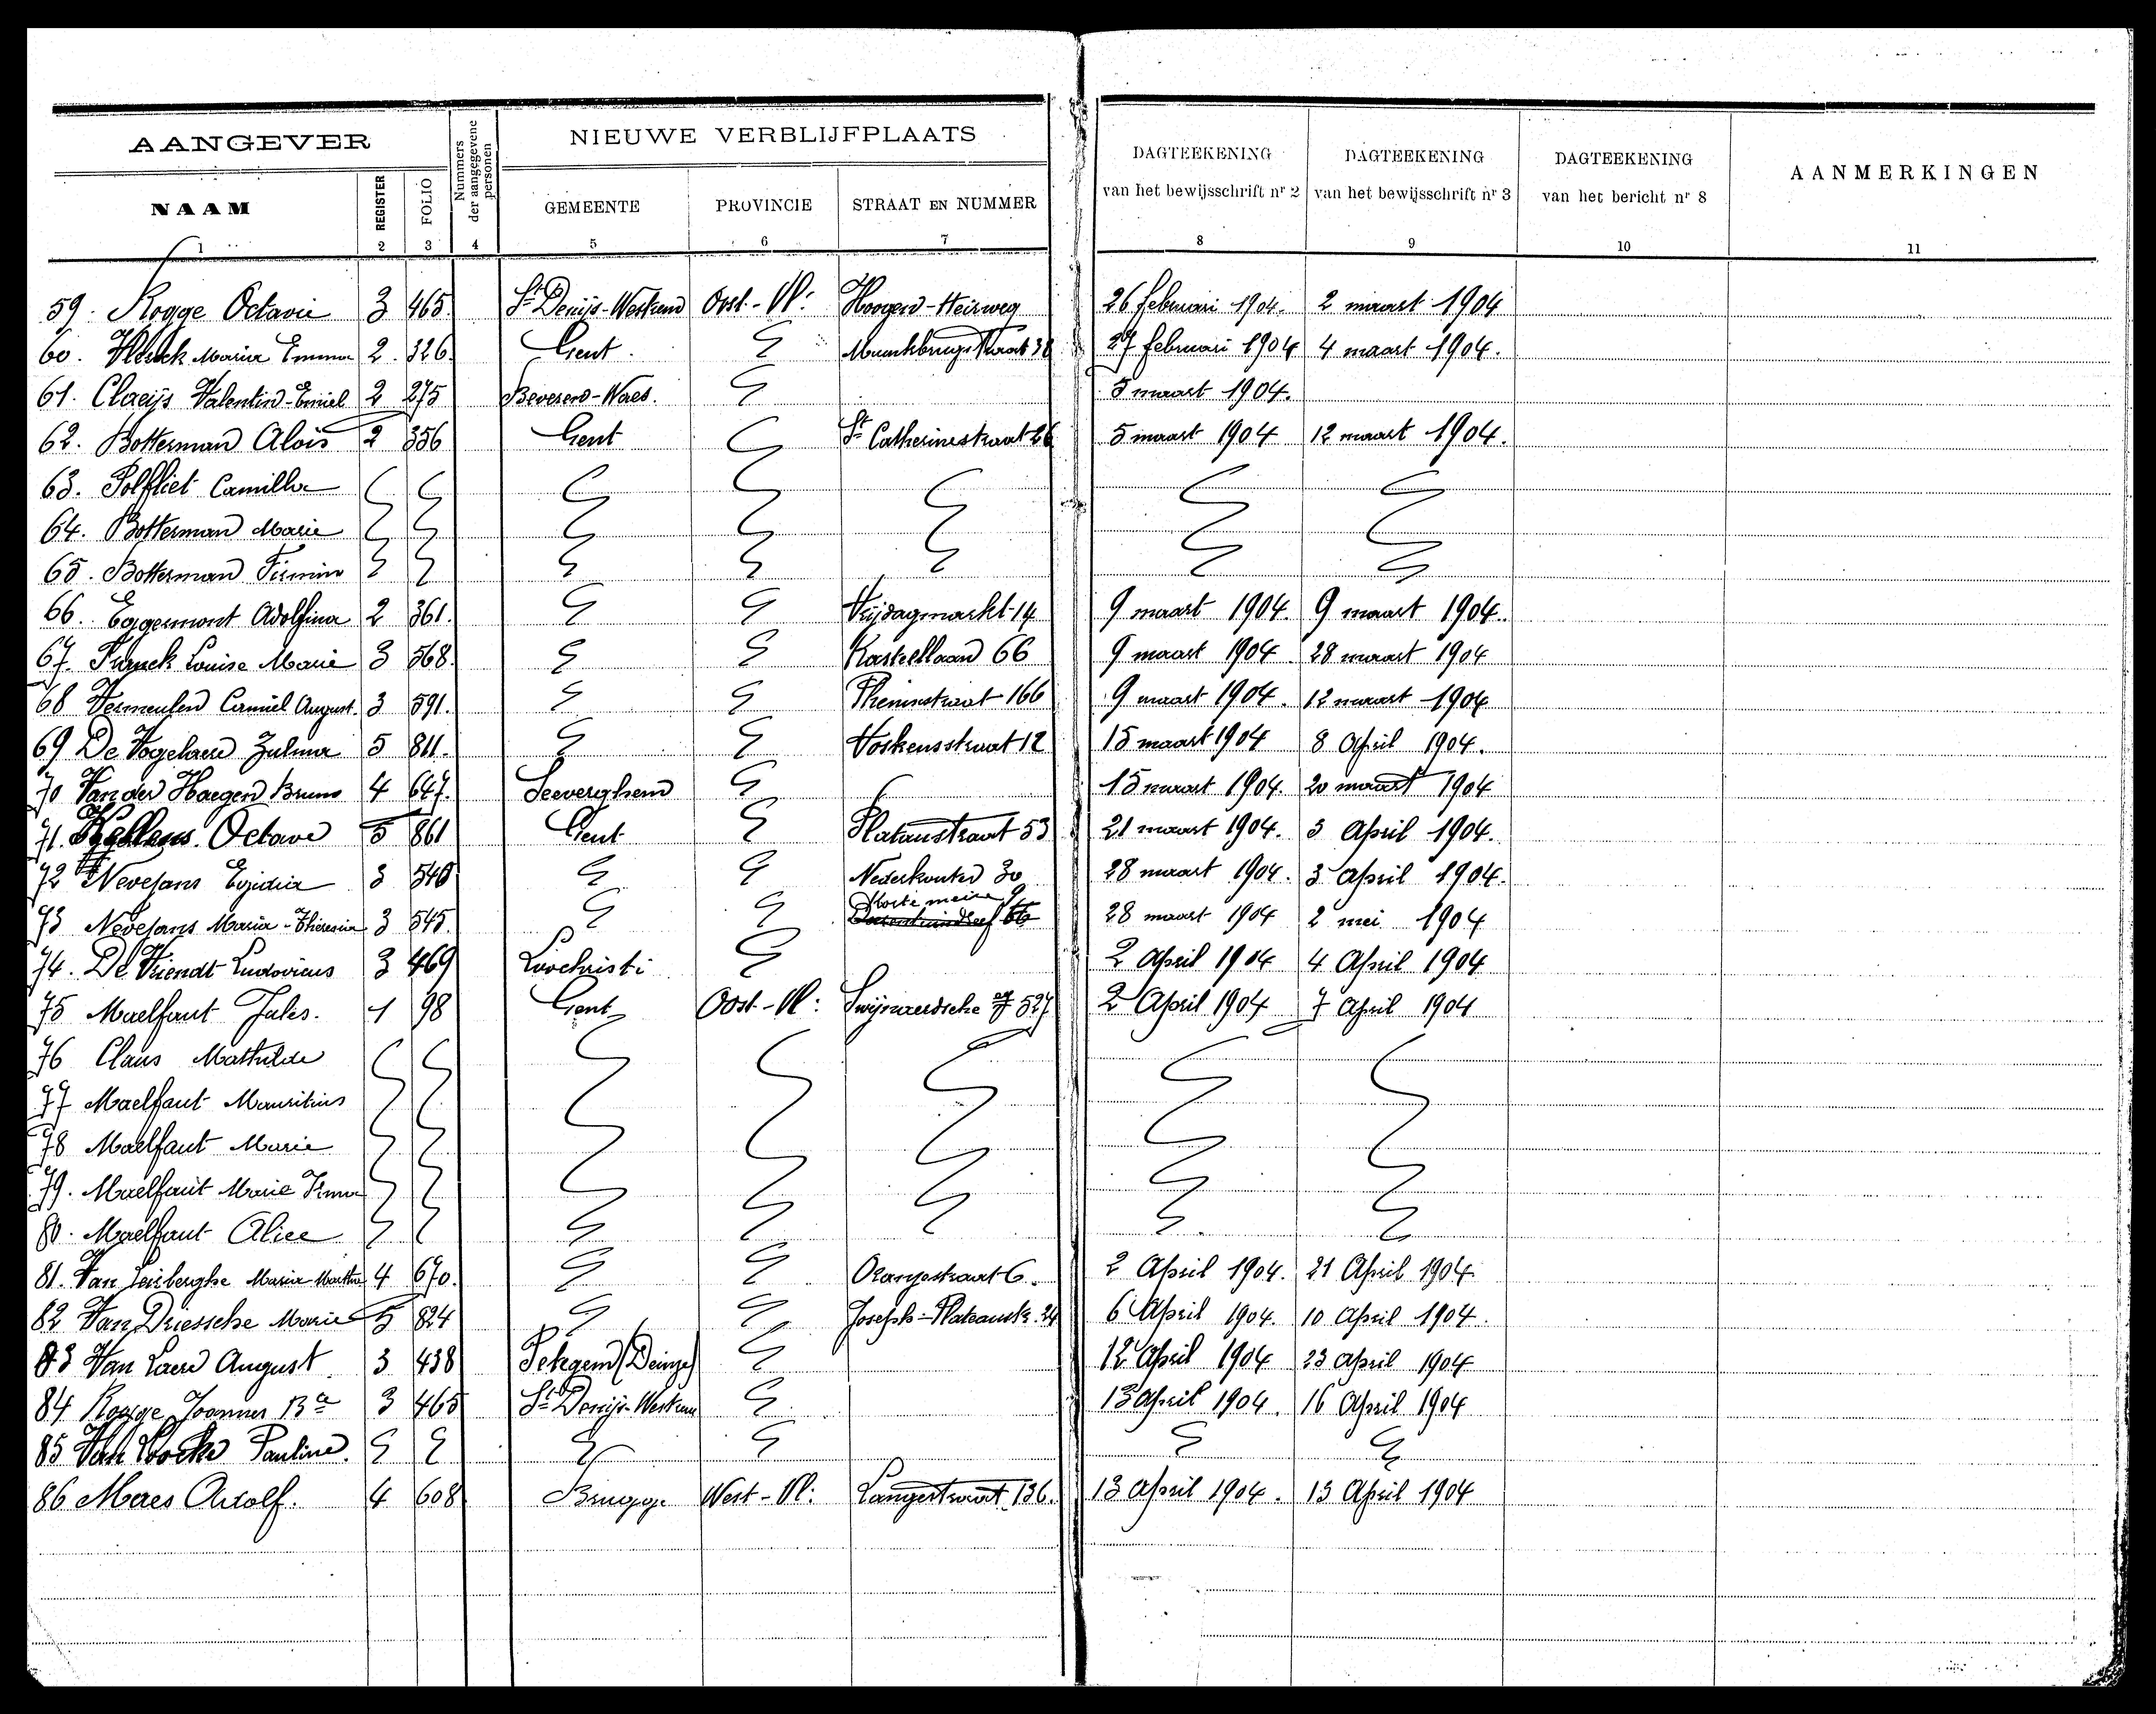 AANGEVER
Nummers der aangegevene personen
NIEUWE VERBLIJFPLAATS
DAGTEEKENING van het bewijsschrift nr 2
DAGTEEKENING van het bewijsschrift nr 3
DAGTEEKENING van het bericht nr 8
AANMERKINGEN
NAAM REGISTER FOLIO GEMEENTE PROVINCIE STRAAT EN NUMMER
1 2 3 4 5 6 7 8 9 10 11
59. Rogge Octavie 3 465 St Denijs-Westrem Oost-Vl: Hoogen-Heirweg 26 februari 1904. 2 maart 1904
60. Maria Emma 2. 326. Gent. 27 februari 1904 4 maart 1904.
61. Claeijs Valentin-Emiel 2 275 Beveren-Waes. 5 maart 1904.
62. Botterman Aloïs 2 356 Gent St Catherinestraat 26 5 maart 1904 12 maart 1904.
63. Polfliet Camilla
64. Botterman Marie
65. Botterman Firmin
66. Eggermont Adolfina 2 361. Vrijdagmarkt 14 9 maart 1904. 9 maart 1904.
67. Louise Marie 3 568. Kasteellaan 66 9 maart 1904. 28 maart 1904
68 Vermeulen Camiel August. 3 591. 166 9 maart 1904. 12 maart 1904
69 De Vogelaere Zulma 5 811. Voskensstraat 12 15 maart 1904 8 April 1904.
70 Van der Haegen Bruno 4 647. Seeverghem 15 maart 1904. 20 maart 1904
71. Octave 5 861 Gent Platanstraat 53 21 maart 1904. 3 April 1904.
72 Nevejans Egidia 3 540 Nederkouter 30 28 maart 1904. 3 April 1904.
73 Nevejans Maria-Theresia 3 545. Korte meire 9 28 maart 1904 2 mei 1904
74. De Vriendt Ludovicus 3 469 Loochristi 2 April 1904 4 April 1904
75 Maelfaut Jules. 1 98 Gent Oost-Vl: Swijnaerdsche 527 2 April 1904 7 April 1904
76 Claus Mathilde
77 Maelfaut Mauritius
78 Maelfaut Marie
79. Maelfaut Marie Irma
80. Maelfaut Alice
81. Van Maria Martha 4 670. Oranjestraat 6. 2 April 1904. 21 April 1904
82 Van Driessche Marie 5 824 Joseph-Plateaustr. 24 6 April 1904. 10 April 1904.
83 Van Laere August. 3 438 Petegem (Deinze) 12 April 1904 23 April 1904
84 Rogge Joannes Bte 3 465 St Denijs-Westrem 13 April 1904. 16 April 1904
85 Van Pauline.
86 Maes Adolf. 4 608 Brugge West-Vl: Langestraat 136. 13 April 1904. 13 April 1904